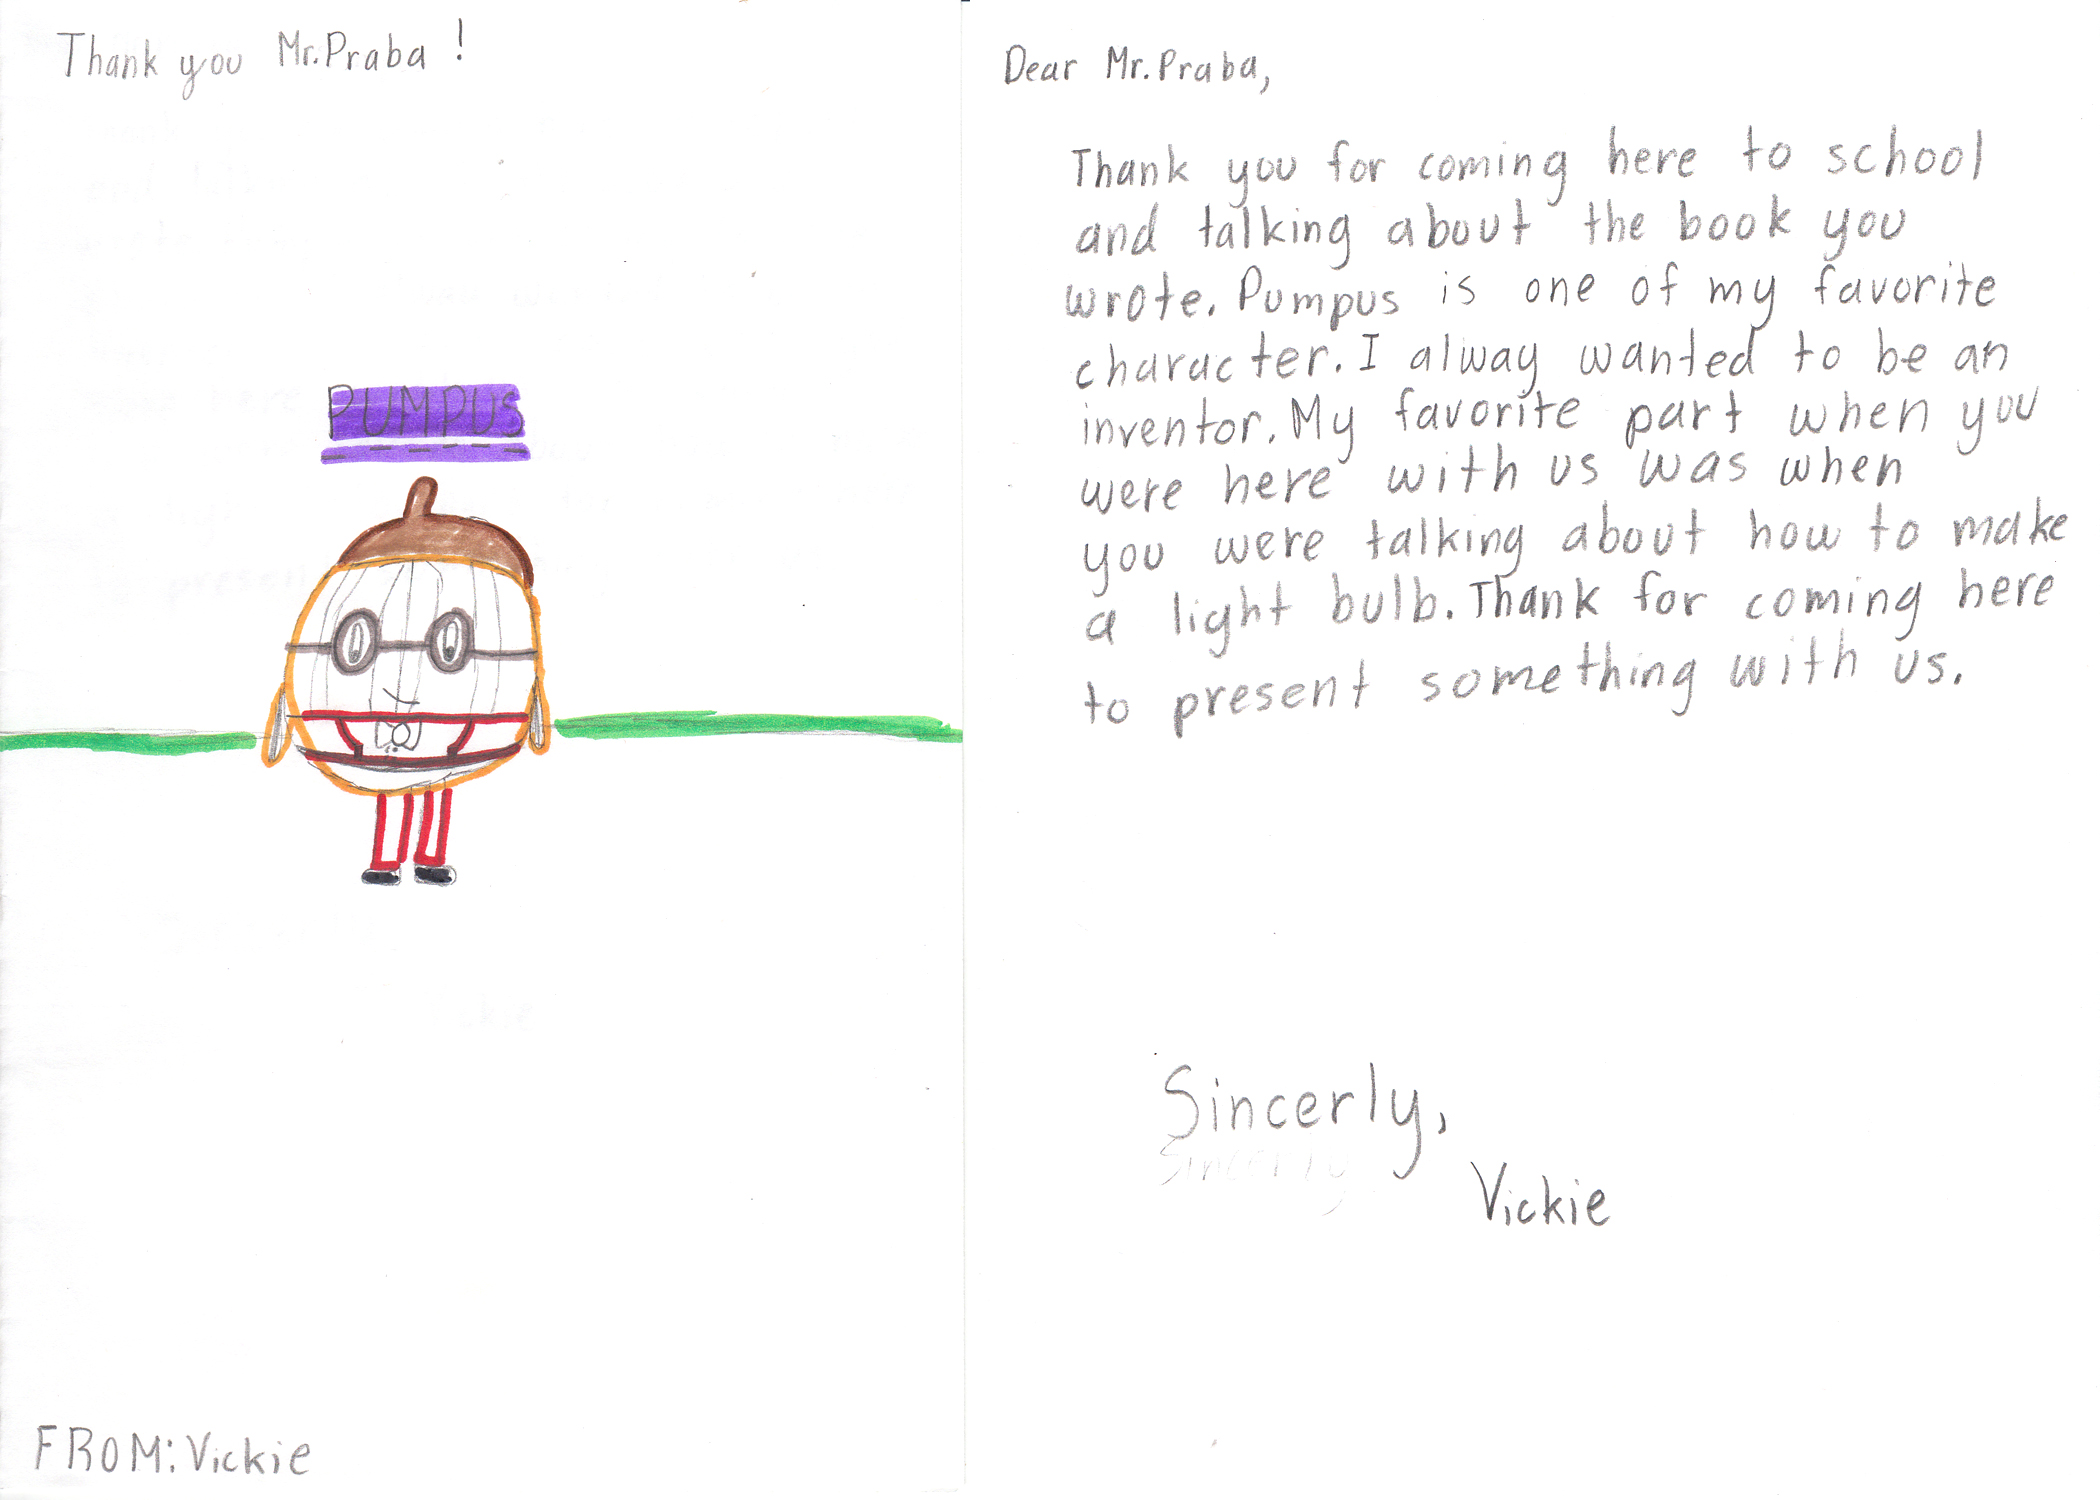 Thank you Mr.Praba !
PUMPUS
FROM: Vickie
Dear Mr.Praba,
Thank you for coming here to school
and talking about the book you
wrote. Pumpus is one of my favorite
character. I alway wanted to be an
inventor. My favorite part when you
were here with us was when
you were talking about how to make
a light bulb. Thank for coming here
to present something with us.
Sincerly,
Sincerly
Vickie